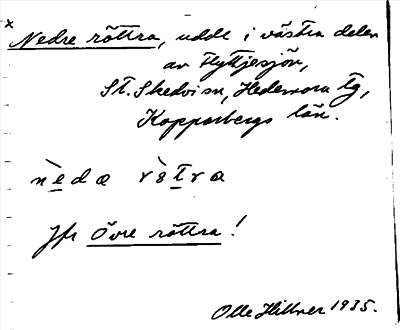 × Nedre röttra, udde i västra delen
av Flyttjesjön,
St. Skedvi sn, Hedemora tg,
Kopparbergs län.
nèda rö̀tra
Jfr Övre röttra!
Olle Hillner 1935.